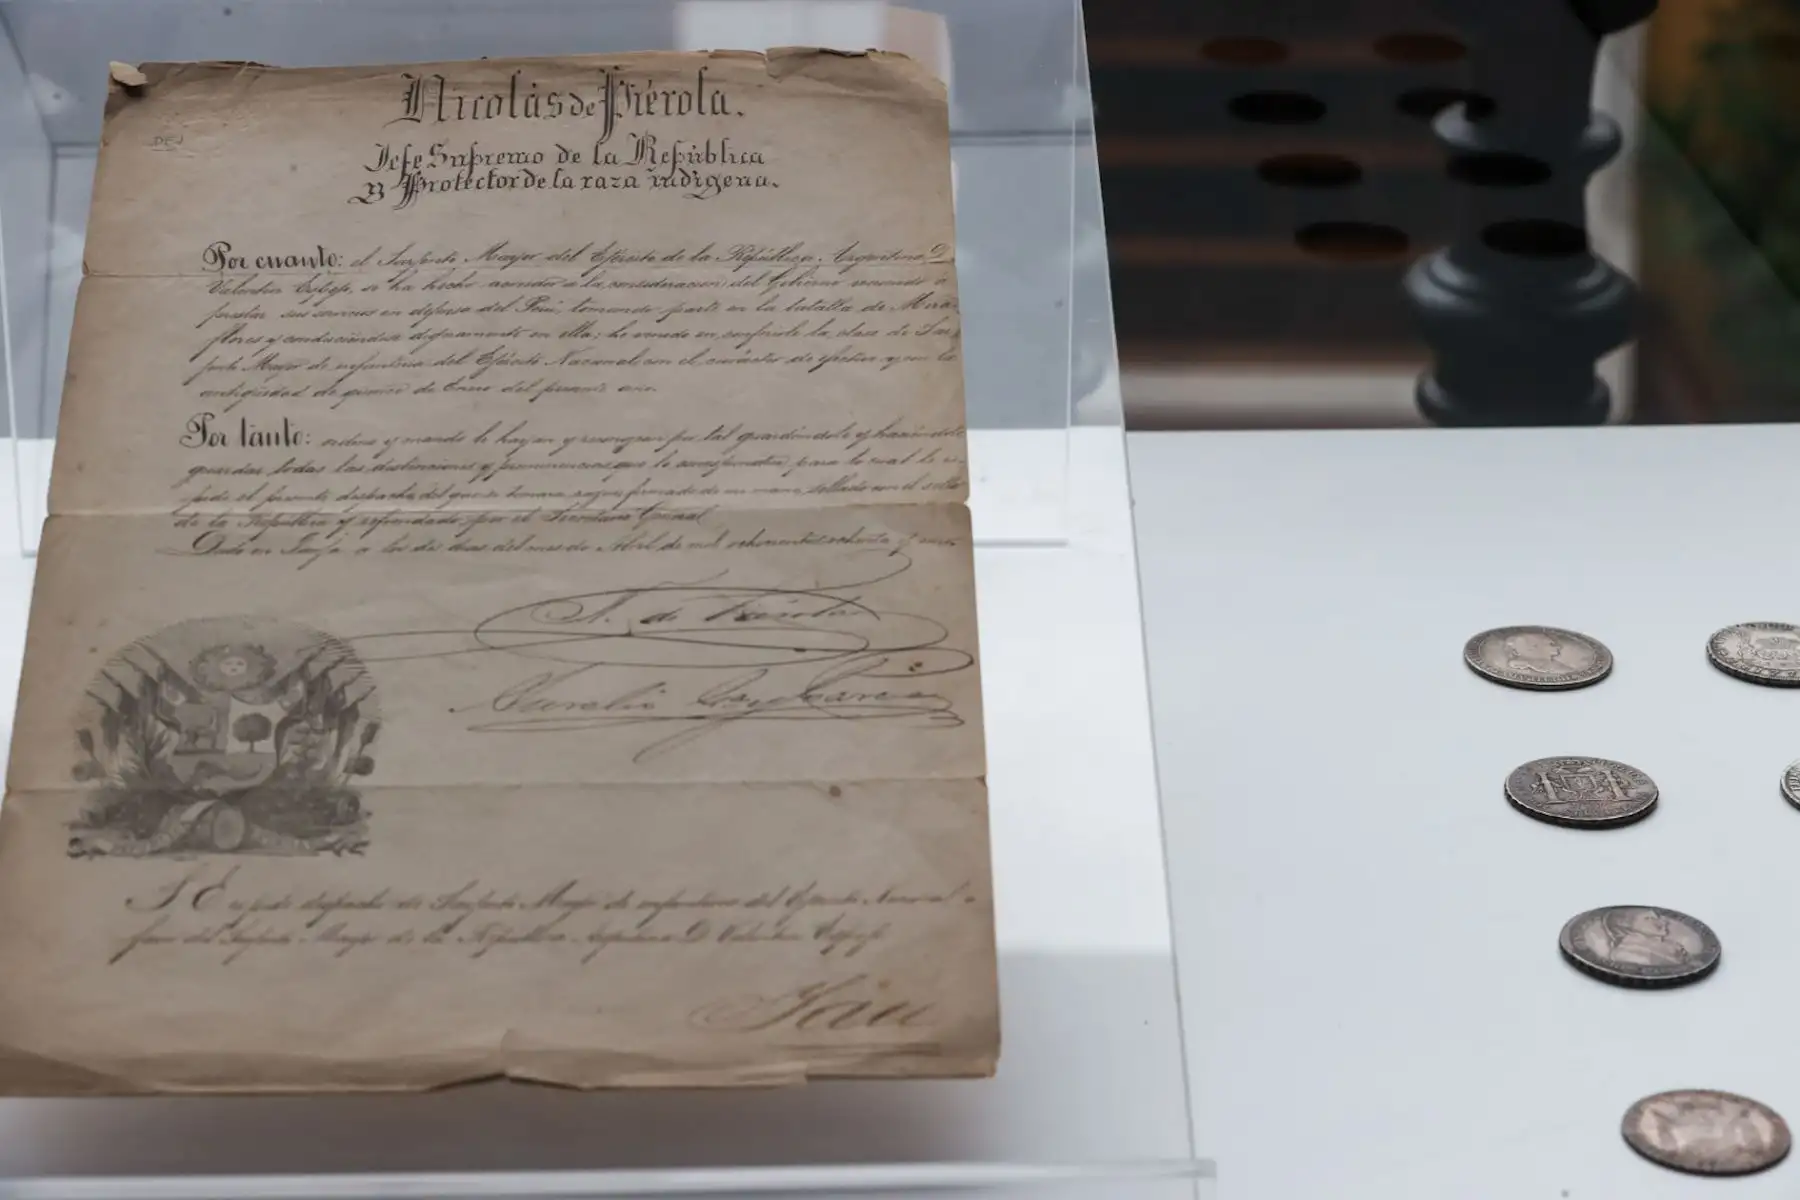 Nicolás de Piérola.
Jefe Supremo de la República
y Protector de la raza indígena.
Por cuanto: el Sarjento Mayor del Ejército de la República Argentina D.
Valentin Espejo, se ha hecho acreedor a la consideracion del Gobierno viniendo á
prestar sus servicios en defensa del Perú, tomando parte en la batalla de Mira-
flores y conduciéndose dignamente en ella: he venido en conferirle la clase de Sar-
jento Mayor de infanteria del Ejército Nacional con el carácter de efectivo y con la
antigüedad de quince de Enero del presente año.
Por tanto: ordeno y mando le hayan y reconozcan por tal guardándole y haciéndole
guardar todas las distinciones y preeminencias que le correspondan para lo cual le es-
pido el presente despacho del que se tomará razon firmado de mi mano, sellado con el sello
de la República y refrendado por el Secretario General.
Dado en Jauja a los dias del mes de Abril de mil ochocientos ochenta y uno.
N. de Piérola
Aurelio García y García
S. E. espide despacho de Sarjento Mayor de infanteria del Ejército Nacional a
favor del Sarjento Mayor de la República Argentina D. Valentin Espejo